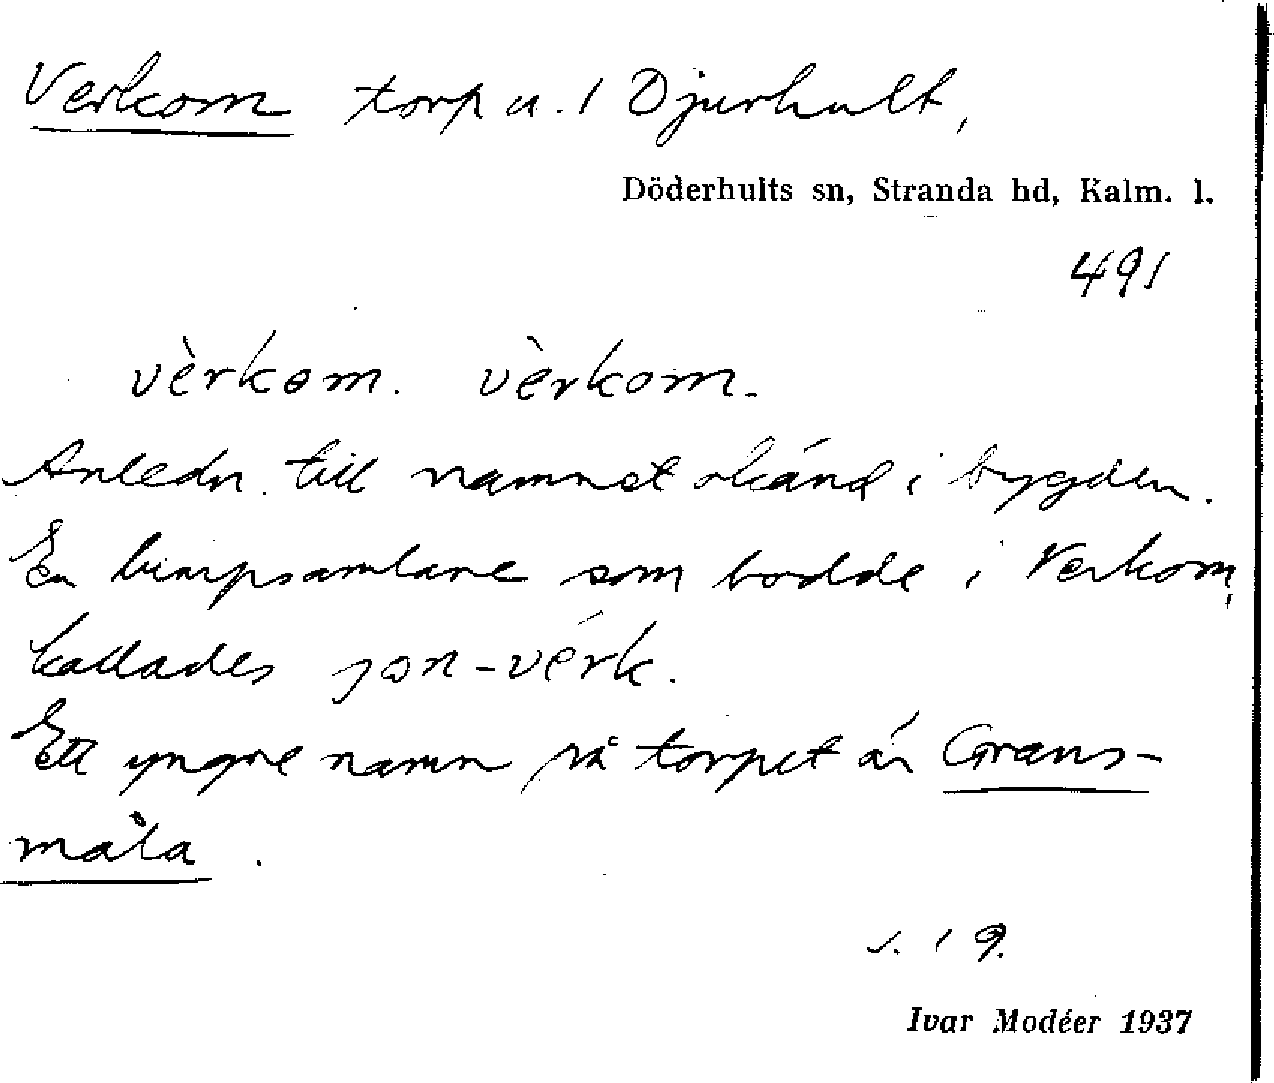 Verkom torp u. 1 Djurhult,
Döderhults sn, Stranda hd, Kalm. l.
491
vèrkɵm. vèrkom.
Anledn. till namnet okänd i bygden.
En lumpsamlare som bodde i Verkom,
kallades jɵn-vérk.
Ett yngre namn på torpet är Grans-
måla.
s. 19.
Ivar Modéer 1937